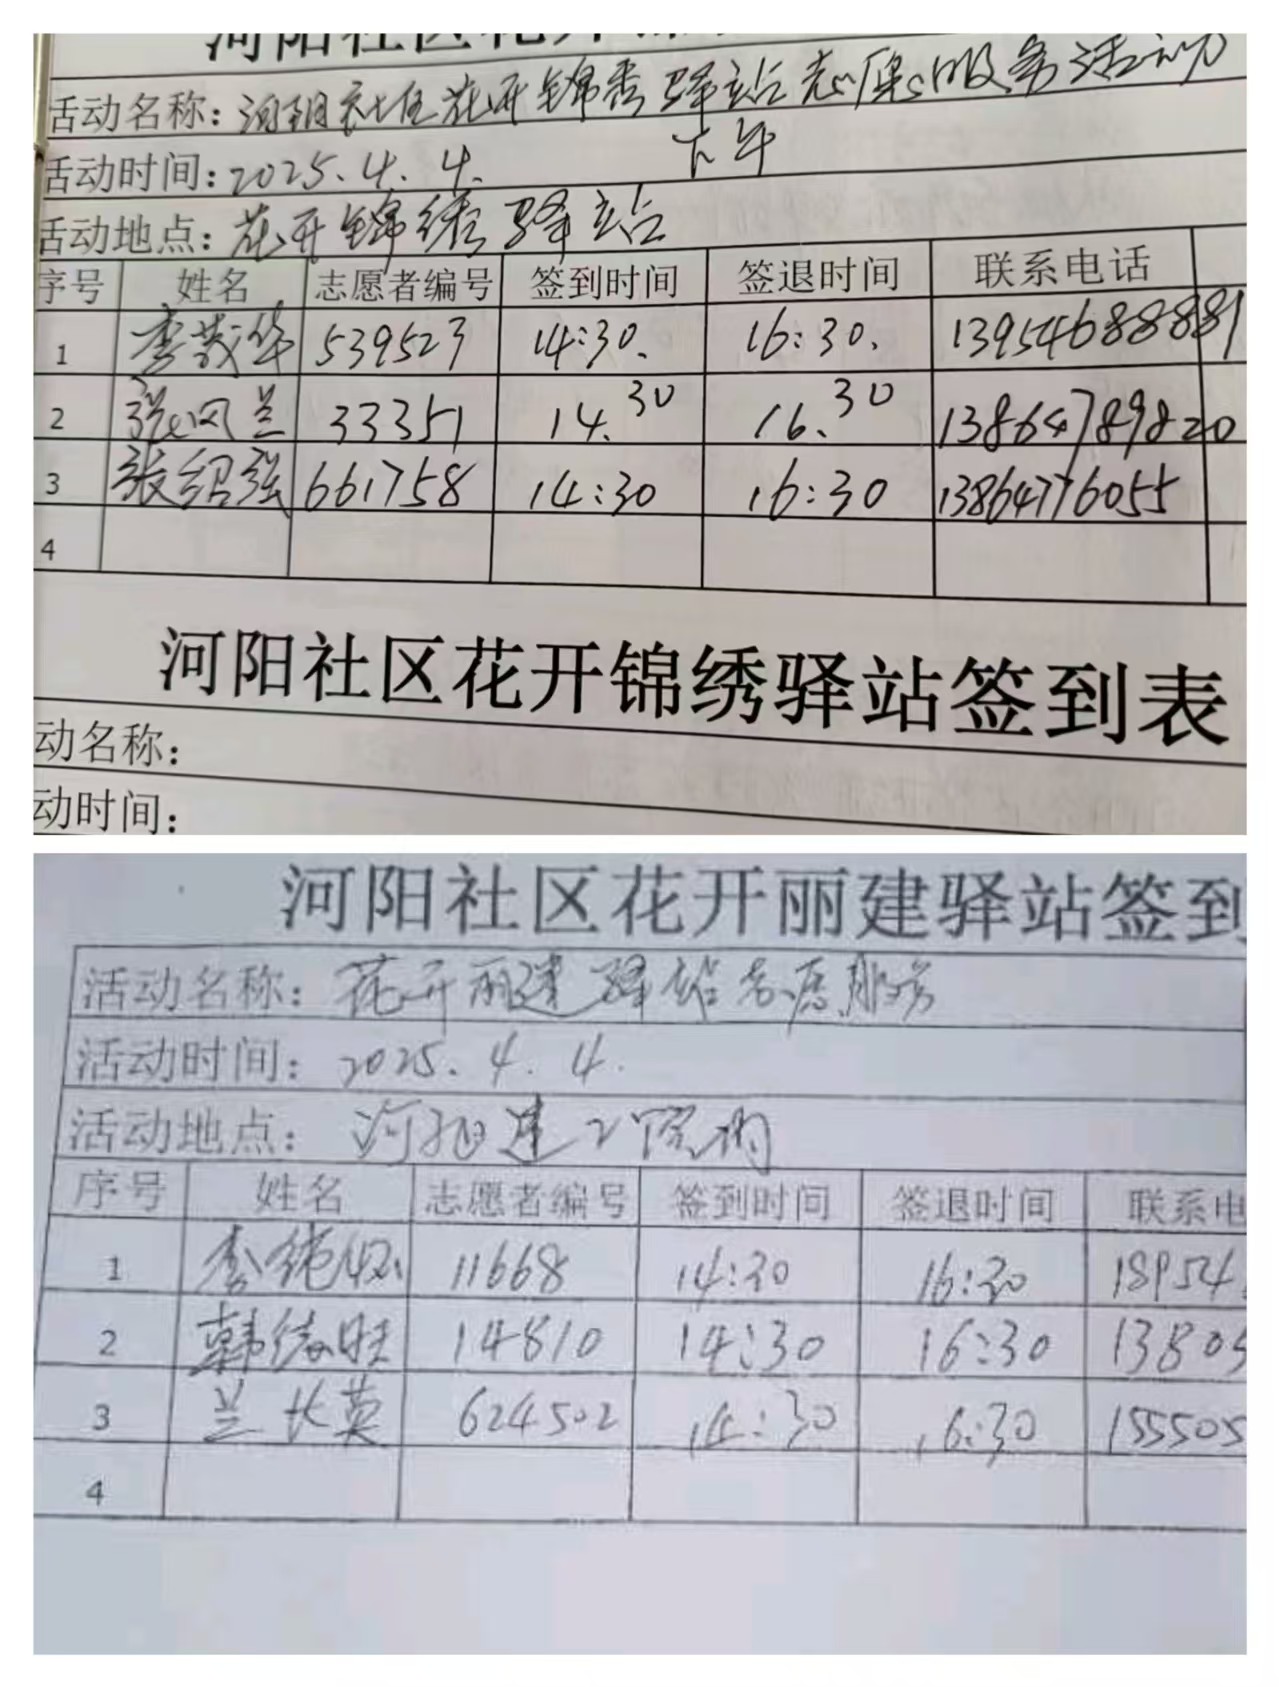 河阳社区花开
活动名称：河阳社区花开锦秀驿站志愿服务活动
活动时间：2025.4.4. 下午
活动地点：花开锦绣驿站
序号 姓名 志愿者编号 签到时间 签退时间 联系电话
1 李茂华 539523 14:30. 16:30.
2 张风兰 33351 14.30 16.30 13864789820
3 张绍强 661758 14:30 16:30 13864776055
4
河阳社区花开锦绣驿站签到表
动名称：
动时间：
河阳社区花开丽建驿站签到
活动名称：花开丽建驿站志愿服务
活动时间：2025.4.4.
活动地点：河阳建工院内
序号 姓名 志愿者编号 签到时间 签退时间 联系电
1 李 11668 14:30 16:30 18954
2 韩德旺 14810 14:30 16:30 13805
3 兰长英 624502 14:30 16:30 155505
4